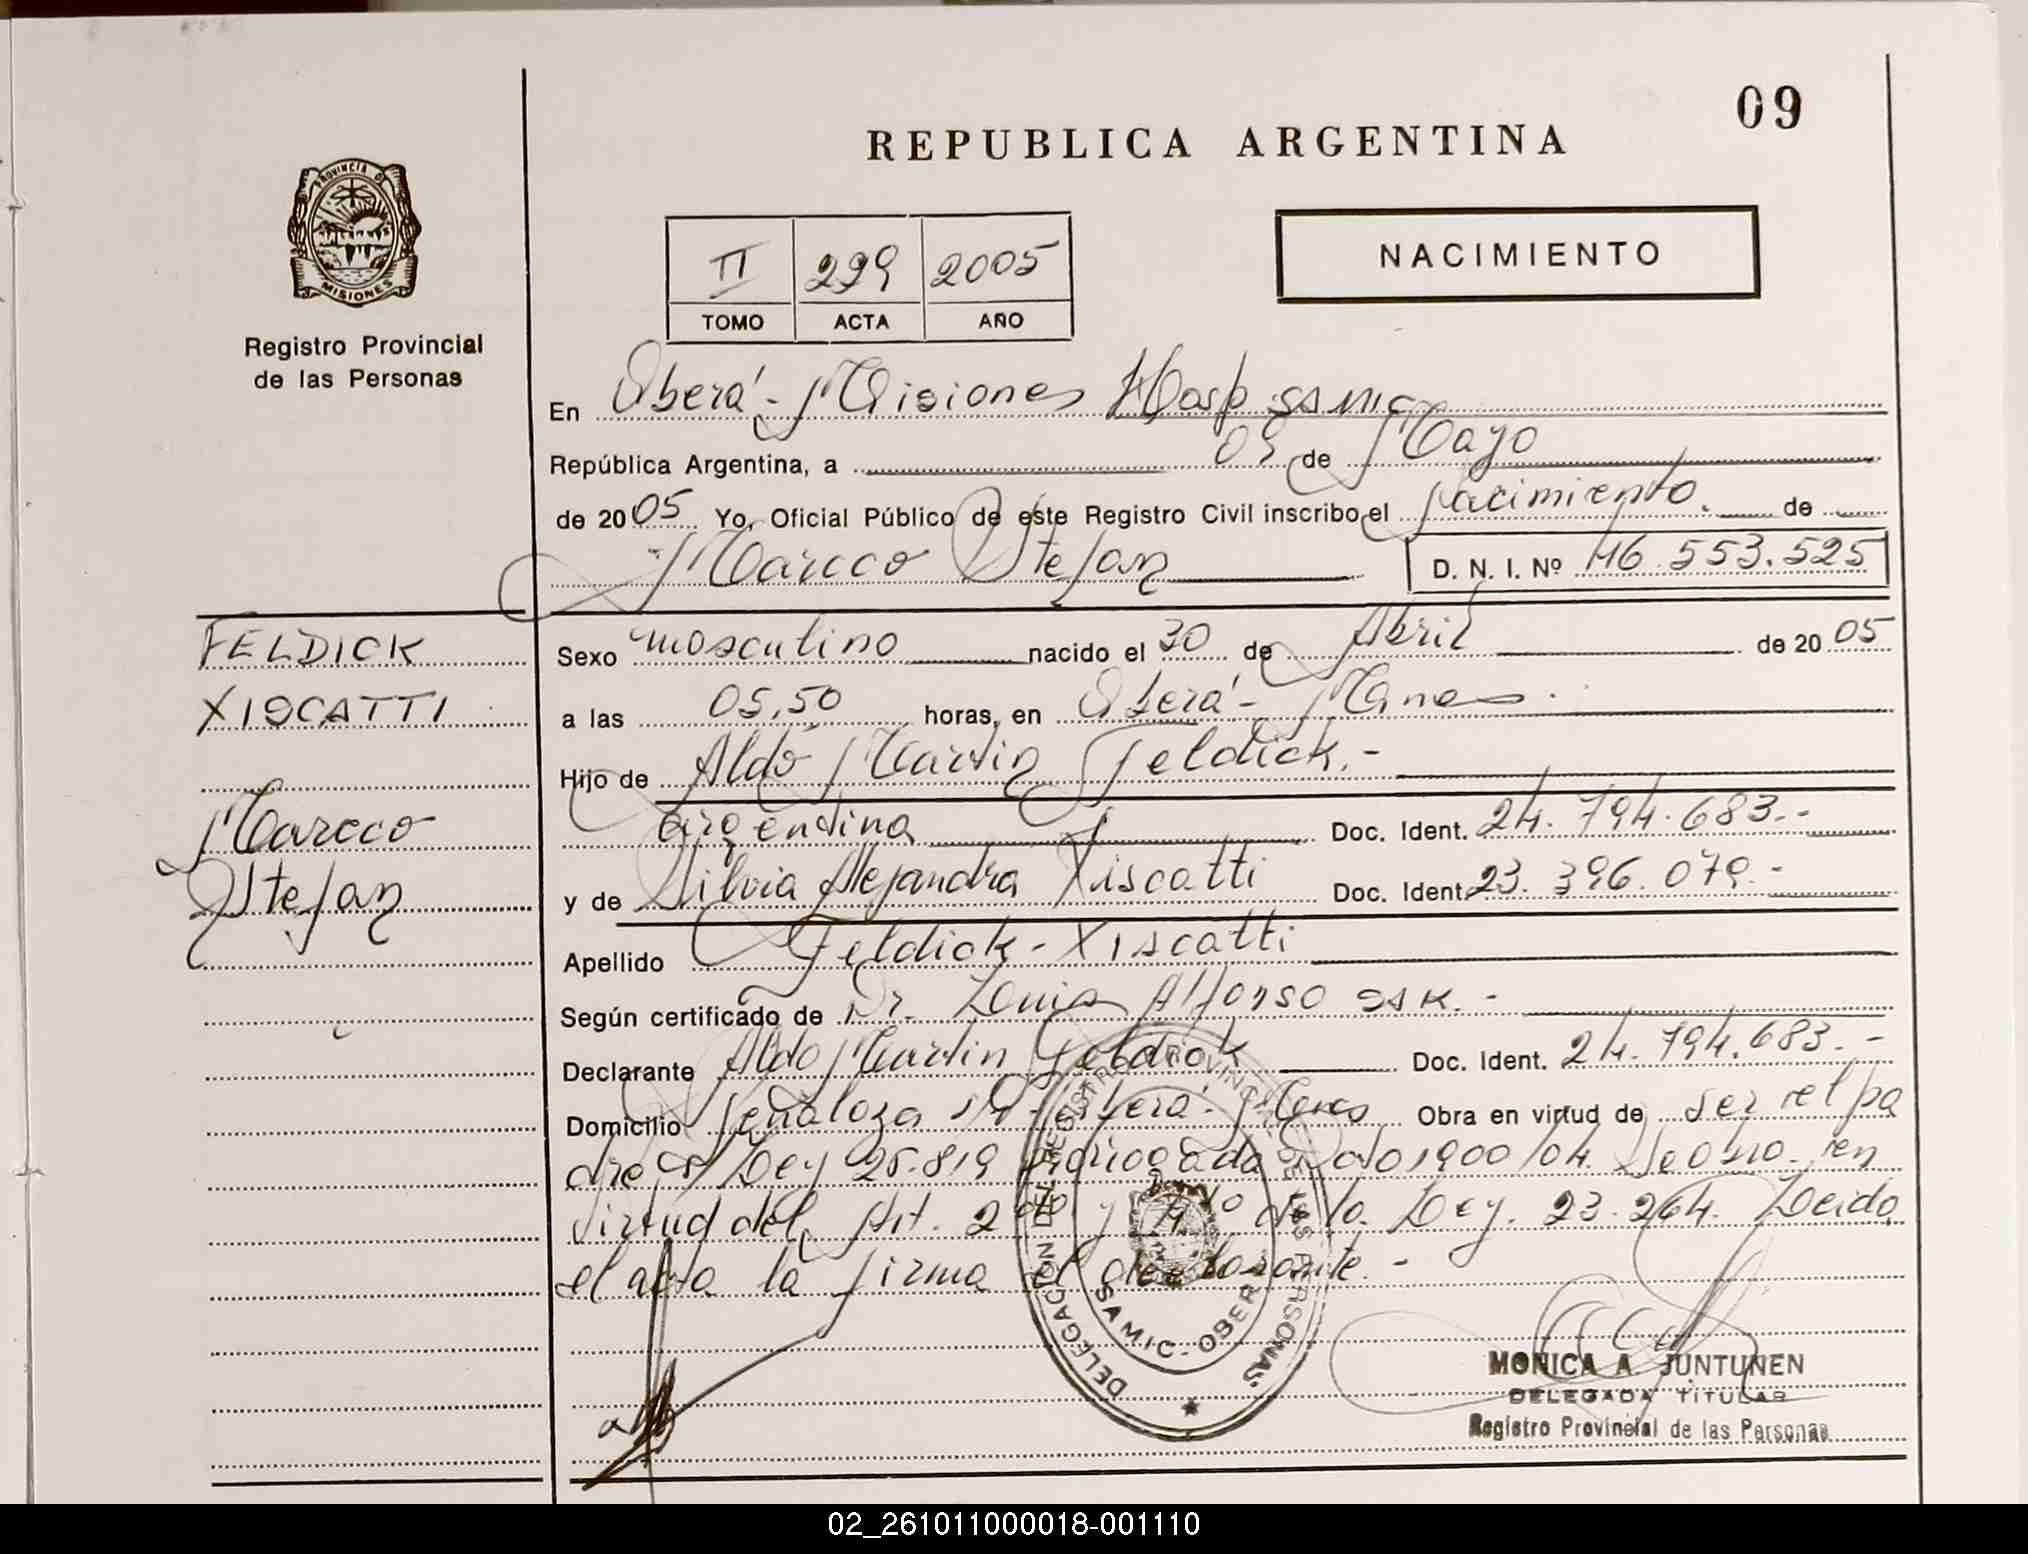 09
REPUBLICA ARGENTINA
PROVINCIA DE
MISIONES
Registro Provincial
de las Personas
II 299 2005
TOMO ACTA AÑO
NACIMIENTO
En Oberá - Misiones Hosp SAMIC
República Argentina, a 03 de Mayo
de 2005 Yo, Oficial Público de este Registro Civil inscribo el nacimiento. de
Marcco Stefan D. N. I. Nº 46.553.525
FELDICK
XISCATTI
Marcco
Stefan
Sexo masculino nacido el 30 de Abril de 2005
a las 05,50 horas, en Oberá - Mnes.
Hijo de Aldo Martin Feldick.-
argentina Doc. Ident. 24.794.683.-
y de Silvia Alejandra Xiscatti Doc. Ident. 23.396.079.-
Apellido Feldick - Xiscatti
Según certificado de Dr. Luis Alfonso
Declarante Aldo Martin Feldick Doc. Ident. 24.794.683.-
Domicilio Peñaloza Oberá - Mnes Obra en virtud de ser el pa
dre Ley 25.819 1900/04. en
virtud del Art. 2do y 4to de la Ley. 23.264. Leida
el acta la firma el declarante.-
DELEGACION DEL REGISTRO PROVINCIAL DE LAS PERSONAS
SAMIC - OBERA
MONICA A. JUNTUNEN
DELEGADA TITULAR
Registro Provincial de las Personas
02_261011000018-001110